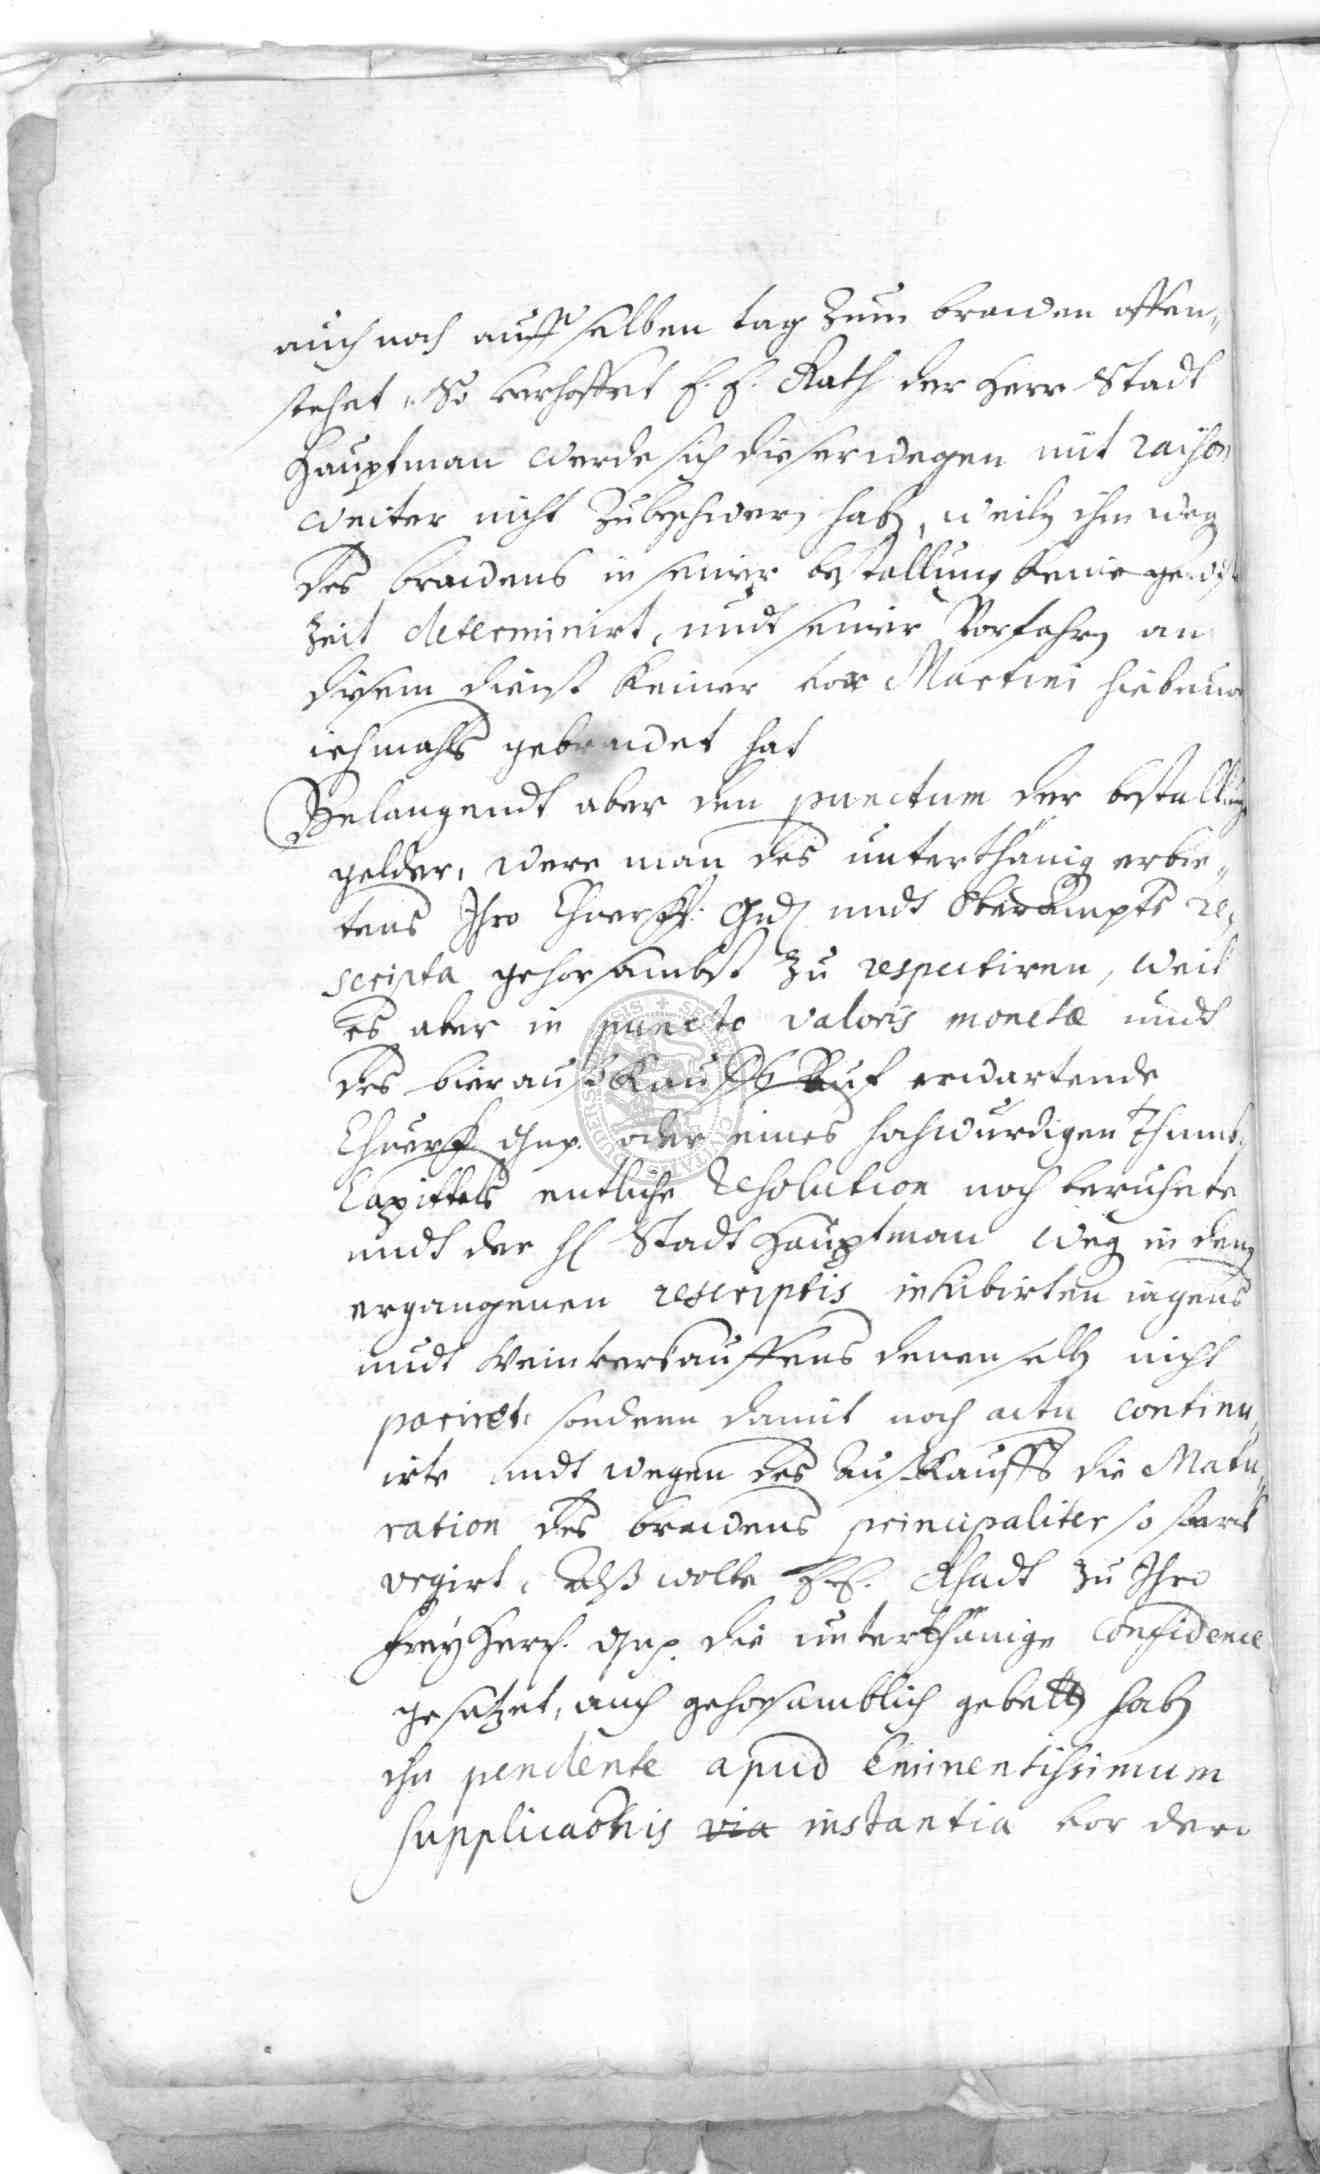 auch noch auff selben tag Zum brawen offen„
stehet, So verhoffet E. E. Rath der Herr Stadt
Hauptman werde sich dieserwegen mit raison
weiter nicht Zubeschwern haben, weiln ihm wegen
des brawens in seiner bestallung keine gewisse
Zeit determinirt, undt seiner Vorfahrn an
diesem dienst keiner vor Martini hiebeuor
iehmahls gebrawet hat
Belangendt aber den punctum der bestallungs
gelder, were man des unterthänig erbie„
tens Ihro Churfl: Gd. undt Oberampts re„
scripta gehorsambst Zu respectiren, weil
es aber in puncto valoris monetæ undt
des bier außkauffs auf erwartende
Churfl gnd. oder eines hochwürdigen Thumb
Capittels entliche resolution noch beruhete
undt der H Stadt Hauptman wegen in denen
ergangenen rescriptis inhibirten iagens
undt Weinverkauffens denenselben nicht
pariret, sondern damit noch actu continu„
irte undt wegen des Außkauffs die Matu„
ration des brawens principaliter so starck
urgirt, Alß wolte E. E. Rhadt Zu Ihro
FreyHerl. gnd. die unterthänige Confidence
gesetzet, auch gehorsamblich gebetten haben
ihn pendente apud Eminentissimum
supplicationis via instantia vor der